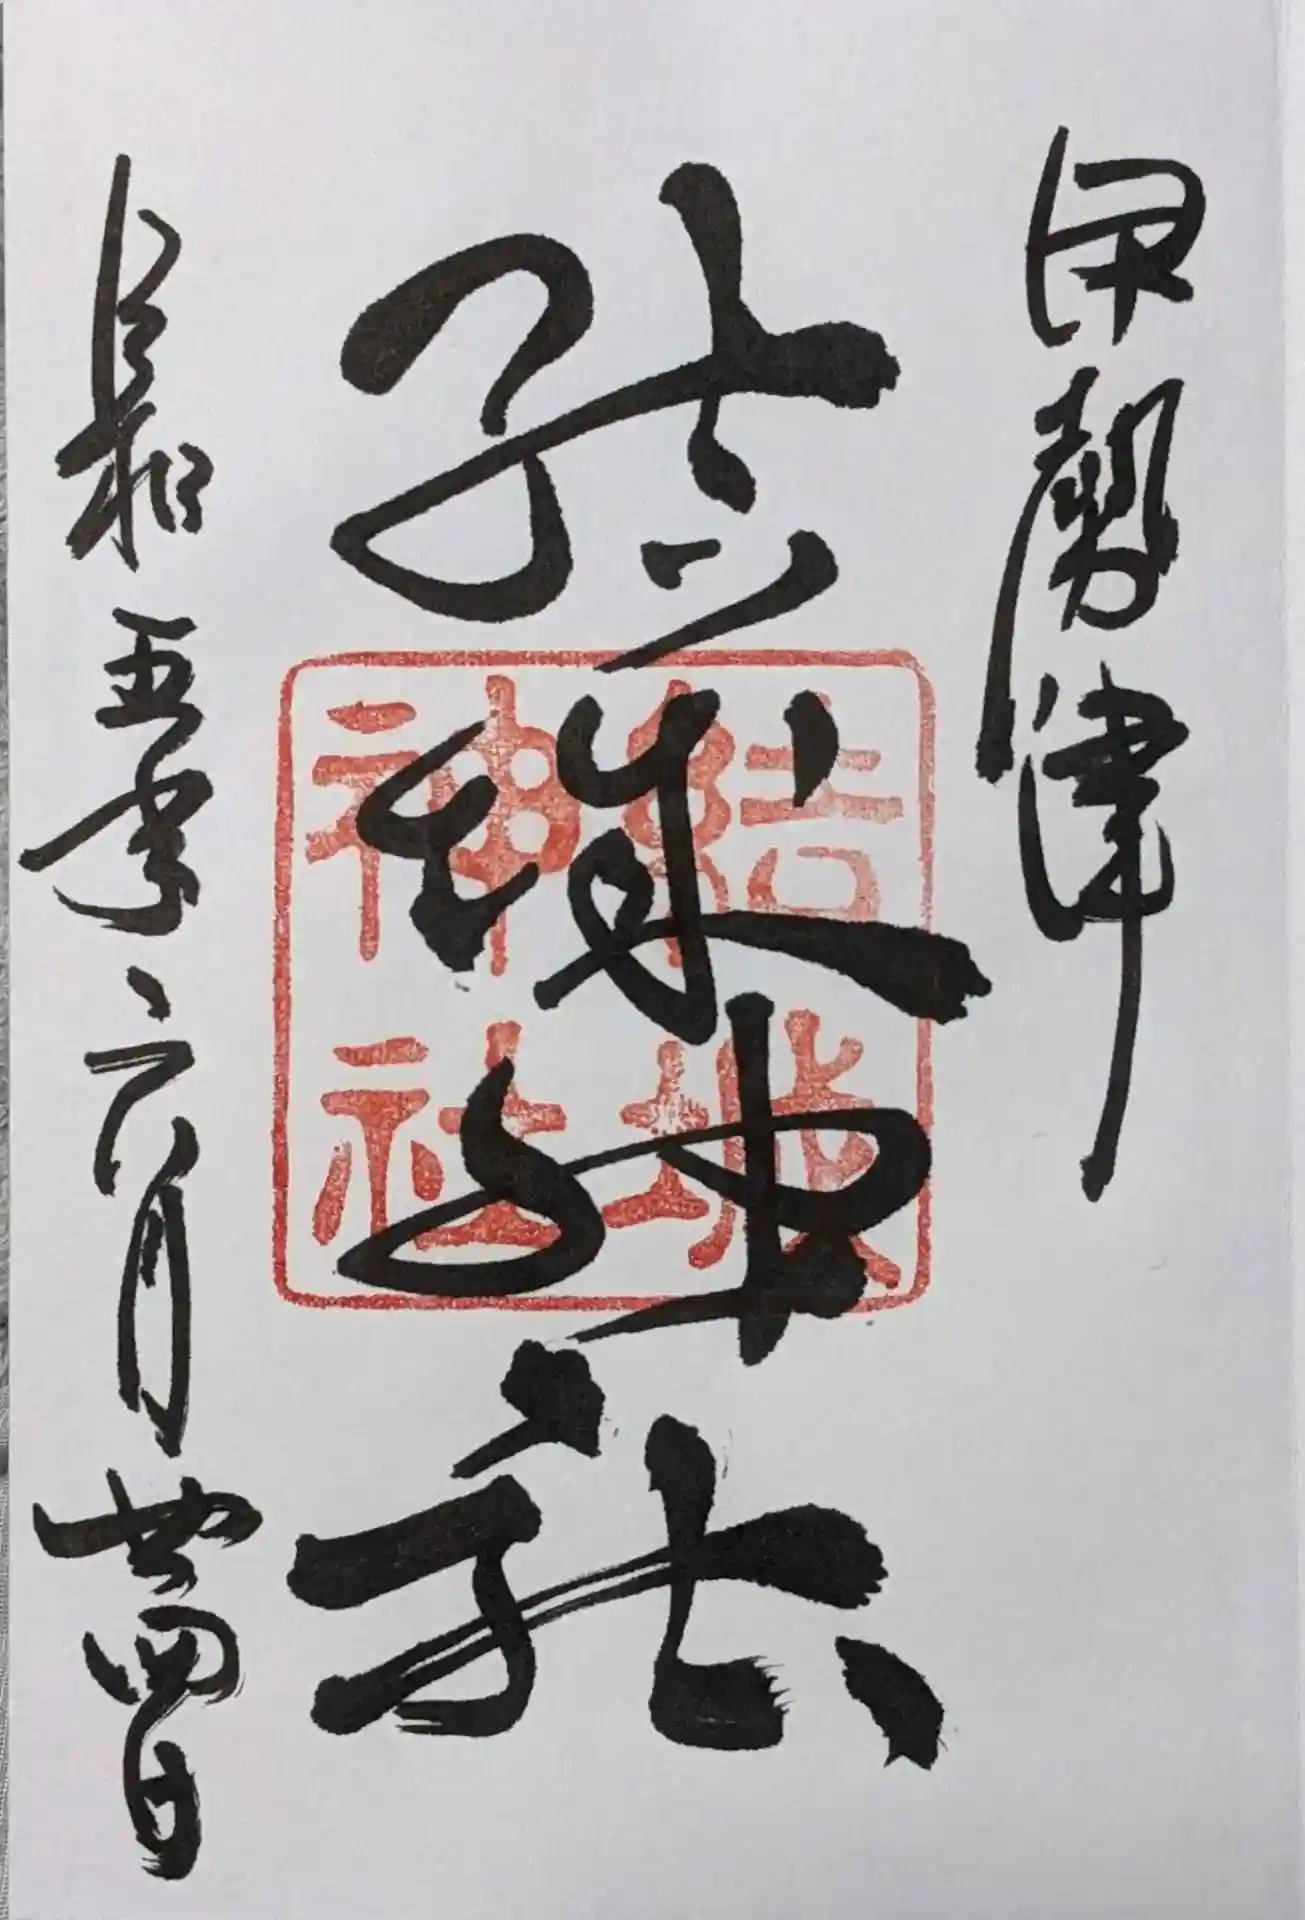 伊勢津
結城神社
結城
神社
令和五年六月廿四日